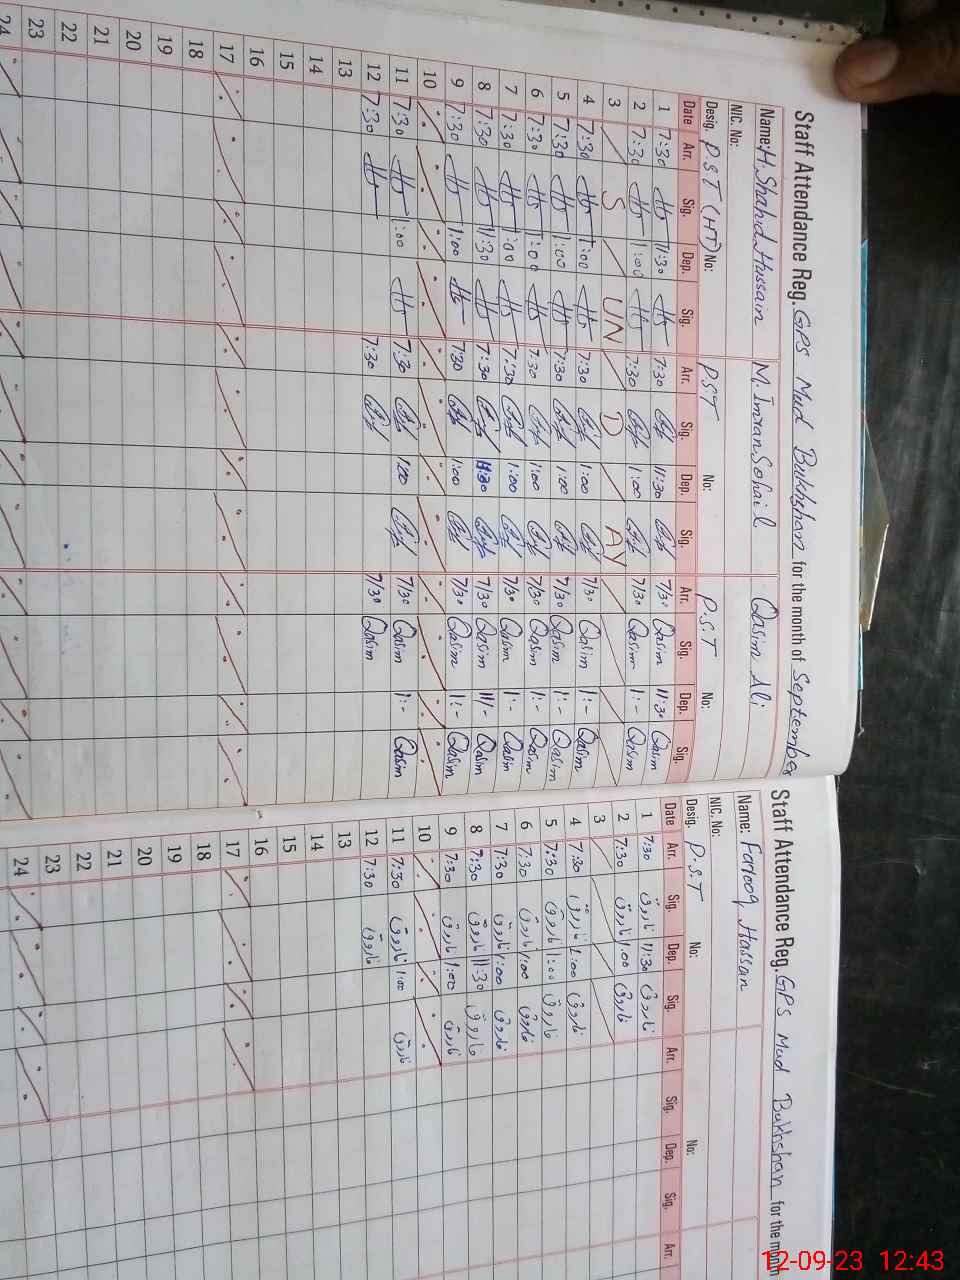 Staff Attendance Reg. GPS Mud Bukhshan for the month of September
Name: H. Shahid Hussain M. Imran Sohail Qasim Ali
NIC. No:
Desig. P.S.T (HT) No: PST No: P.S.T No:
Date Arr. Sig. Dep. Sig. Arr. Sig. Dep. Sig. Arr. Sig. Dep. Sig.
1 7:30 11:30 7:30 11:30 7/30 Qasim 11:30 Qasim
2 7:30 1:00 7:30 1:00 7/30 Qasim 1:- Qasim
3 S UN D AY
4 7:30 1:00 7:30 1:00 7/30 Qasim 1:- Qasim
5 7:30 1:00 7:30 1:00 7/30 Qasim 1:- Qasim
6 7:30 1:00 7:30 1:00 7/30 Qasim 1:- Qasim
7 7:30 1:00 7:30 1:00 7/30 Qasim 1:- Qasim
8 7:30 11:30 7:30 11:30 7/30 Qasim Qasim
9 7:30 1:00 7:30 1:00 7/30 Qasim 1:- Qasim
10
11 7:30 1:00 7:30 1:00 7/30 Qasim 1:- Qasim
12 7:30 7:30 7/30 Qasim
13
14
15
16
17
18
19
20
21
22
23
24
Staff Attendance Reg. GPS Mud Bukhshan for the month
Name: Farooq Hassan
NIC. No:
Desig. P.S.T No: No:
Date Arr. Sig. Dep. Sig. Arr. Sig. Dep. Sig. Arr.
1 7:30 فاروق 11:30 فاروق
2 7:30 فاروق 1:00 فاروق
3
4 7:30 فاروق 1:00 فاروق
5 7:30 فاروق 1:00 فاروق
6 7:30 فاروق 1:00 فاروق
7 7:30 فاروق 1:00 فاروق
8 7:30 فاروق 11:30 فاروق
9 7:30 فاروق 1:00 فاروق
10
11 7:30 فاروق 1:00 فاروق
12 7:30 فاروق
13
14
15
16
17
18
19
20
21
22
23
24
12-09-23 12:43